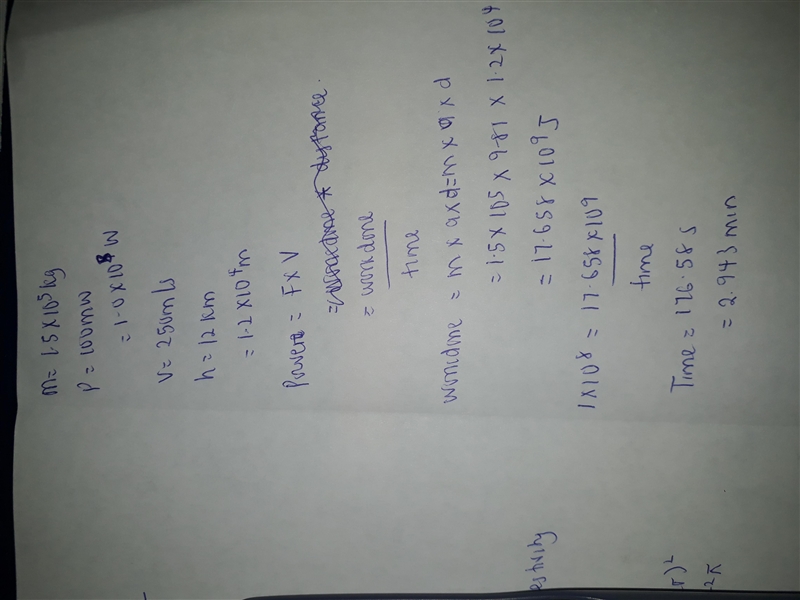 m= 1.5X10⁵kg
P = 100MW
= 1.0 X10⁸ W
V= 250m/s
h= 12km
= 1.2X10⁴m
Power = F X V
= workdone
time
workdone = m x a x d = m x g x d
= 1.5 X 10⁵ x 9.81 x 1.2 X 10⁴
= 17.658 X 10⁹ J
1X10⁸ = 17.658 X10⁹
time
Time = 176.58 s
= 2.943 min
estivity
π)²
2π